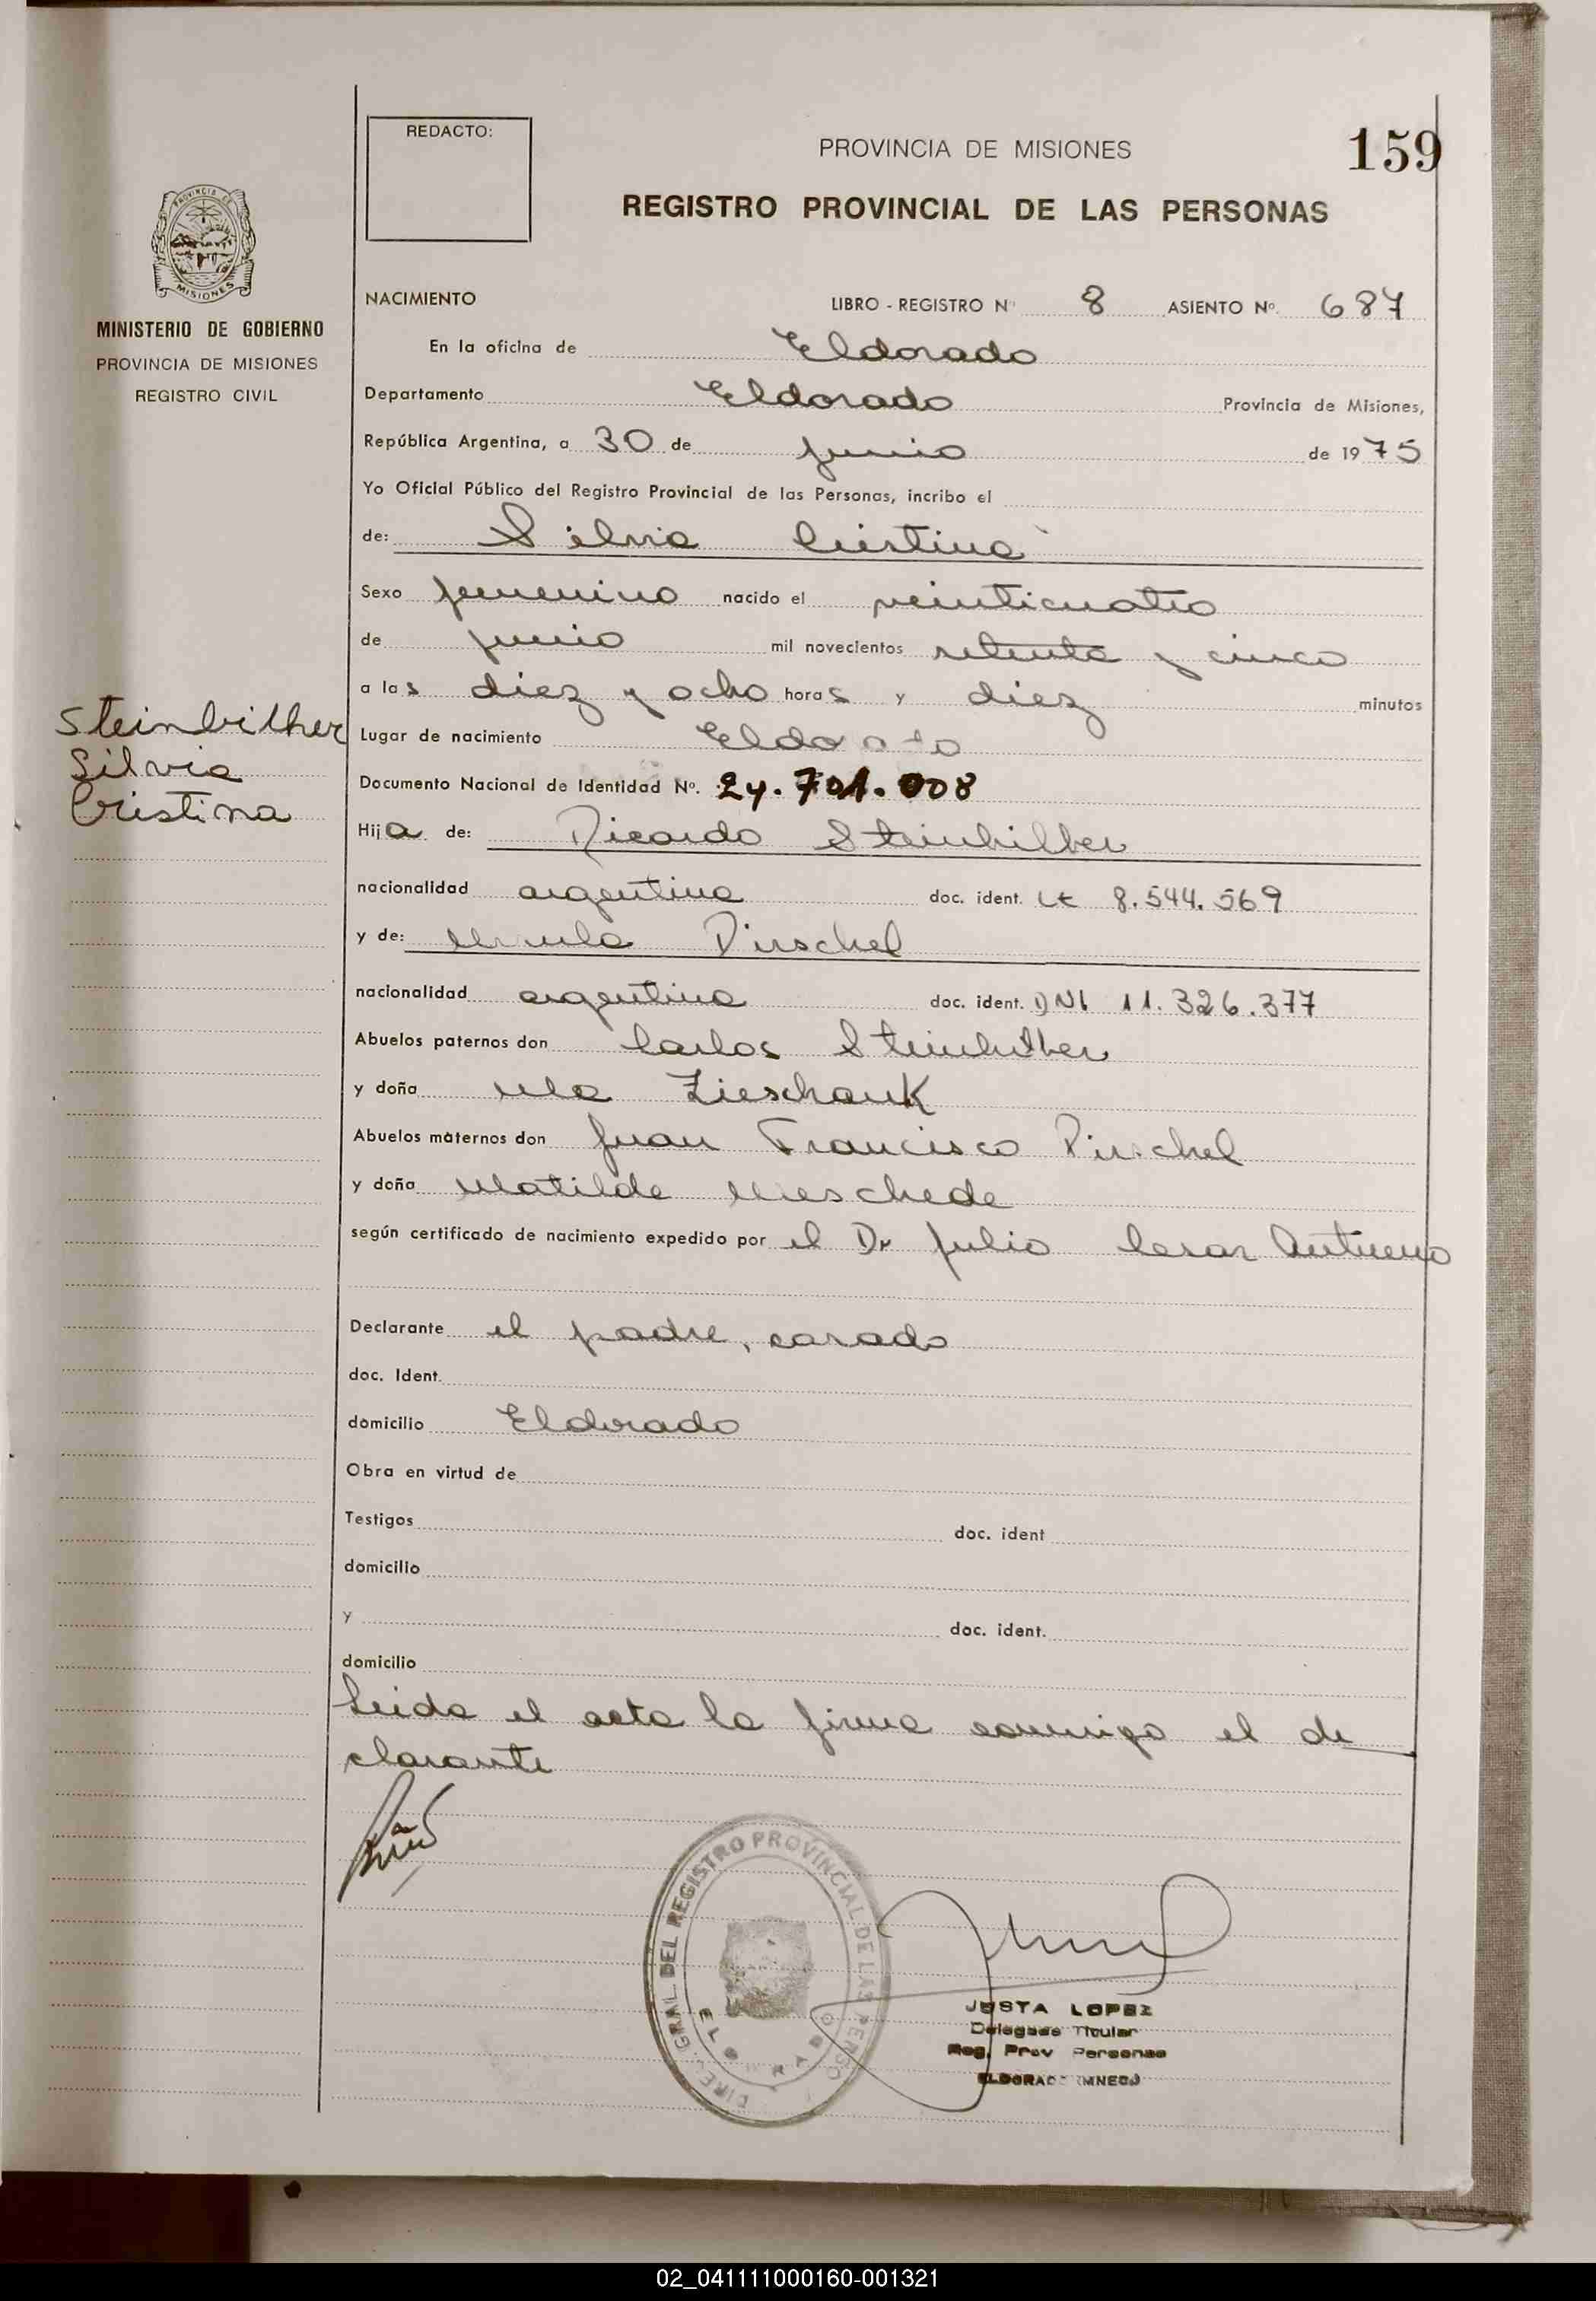 REDACTO:
PROVINCIA DE MISIONES
159
REGISTRO PROVINCIAL DE LAS PERSONAS
PROVINCIA DE
MISIONES
MINISTERIO DE GOBIERNO
PROVINCIA DE MISIONES
REGISTRO CIVIL
NACIMIENTO LIBRO - REGISTRO Nº 8 ASIENTO Nº. 687
En la oficina de Eldorado
Departamento Eldorado Provincia de Misiones,
República Argentina, a 30 de junio de 1975
Yo Oficial Público del Registro Provincial de las Personas, incribo el
de: Silvia Cristina
Sexo femenino nacido el veinticuatro
de junio mil novecientos setenta y cinco
a las diez y ocho horas y diez minutos
Steinbilher
Silvia
Cristina
Lugar de nacimiento Eldorado
Documento Nacional de Identidad Nº. 24.701.008
Hija de: Ricardo Steinhilber
nacionalidad argentina doc. ident. LE 8.544.569
y de: Ursula Pirschel
nacionalidad argentina doc. ident. DNI 11.326.377
Abuelos paternos don Carlos Steinhilber
y doña Zieschank
Abuelos maternos don Juan Francisco Pirschel
y doña Matilde Meschede
según certificado de nacimiento expedido por el Dr Julio Cesar
Declarante el padre, casado
doc. Ident.
domicilio Eldorado
Obra en virtud de
Testigos doc. ident
domicilio
y doc. ident.
domicilio
Leida el acta la firma conmigo el de
clarante
DIREC. GRAL. DEL REGISTRO PROVINCIAL DE LAS PERSO
ELDORADO
JUSTA LOPEZ
Delegada Titular
Reg. Prov Personas
ELDORADO (MNES)
02_041111000160-001321